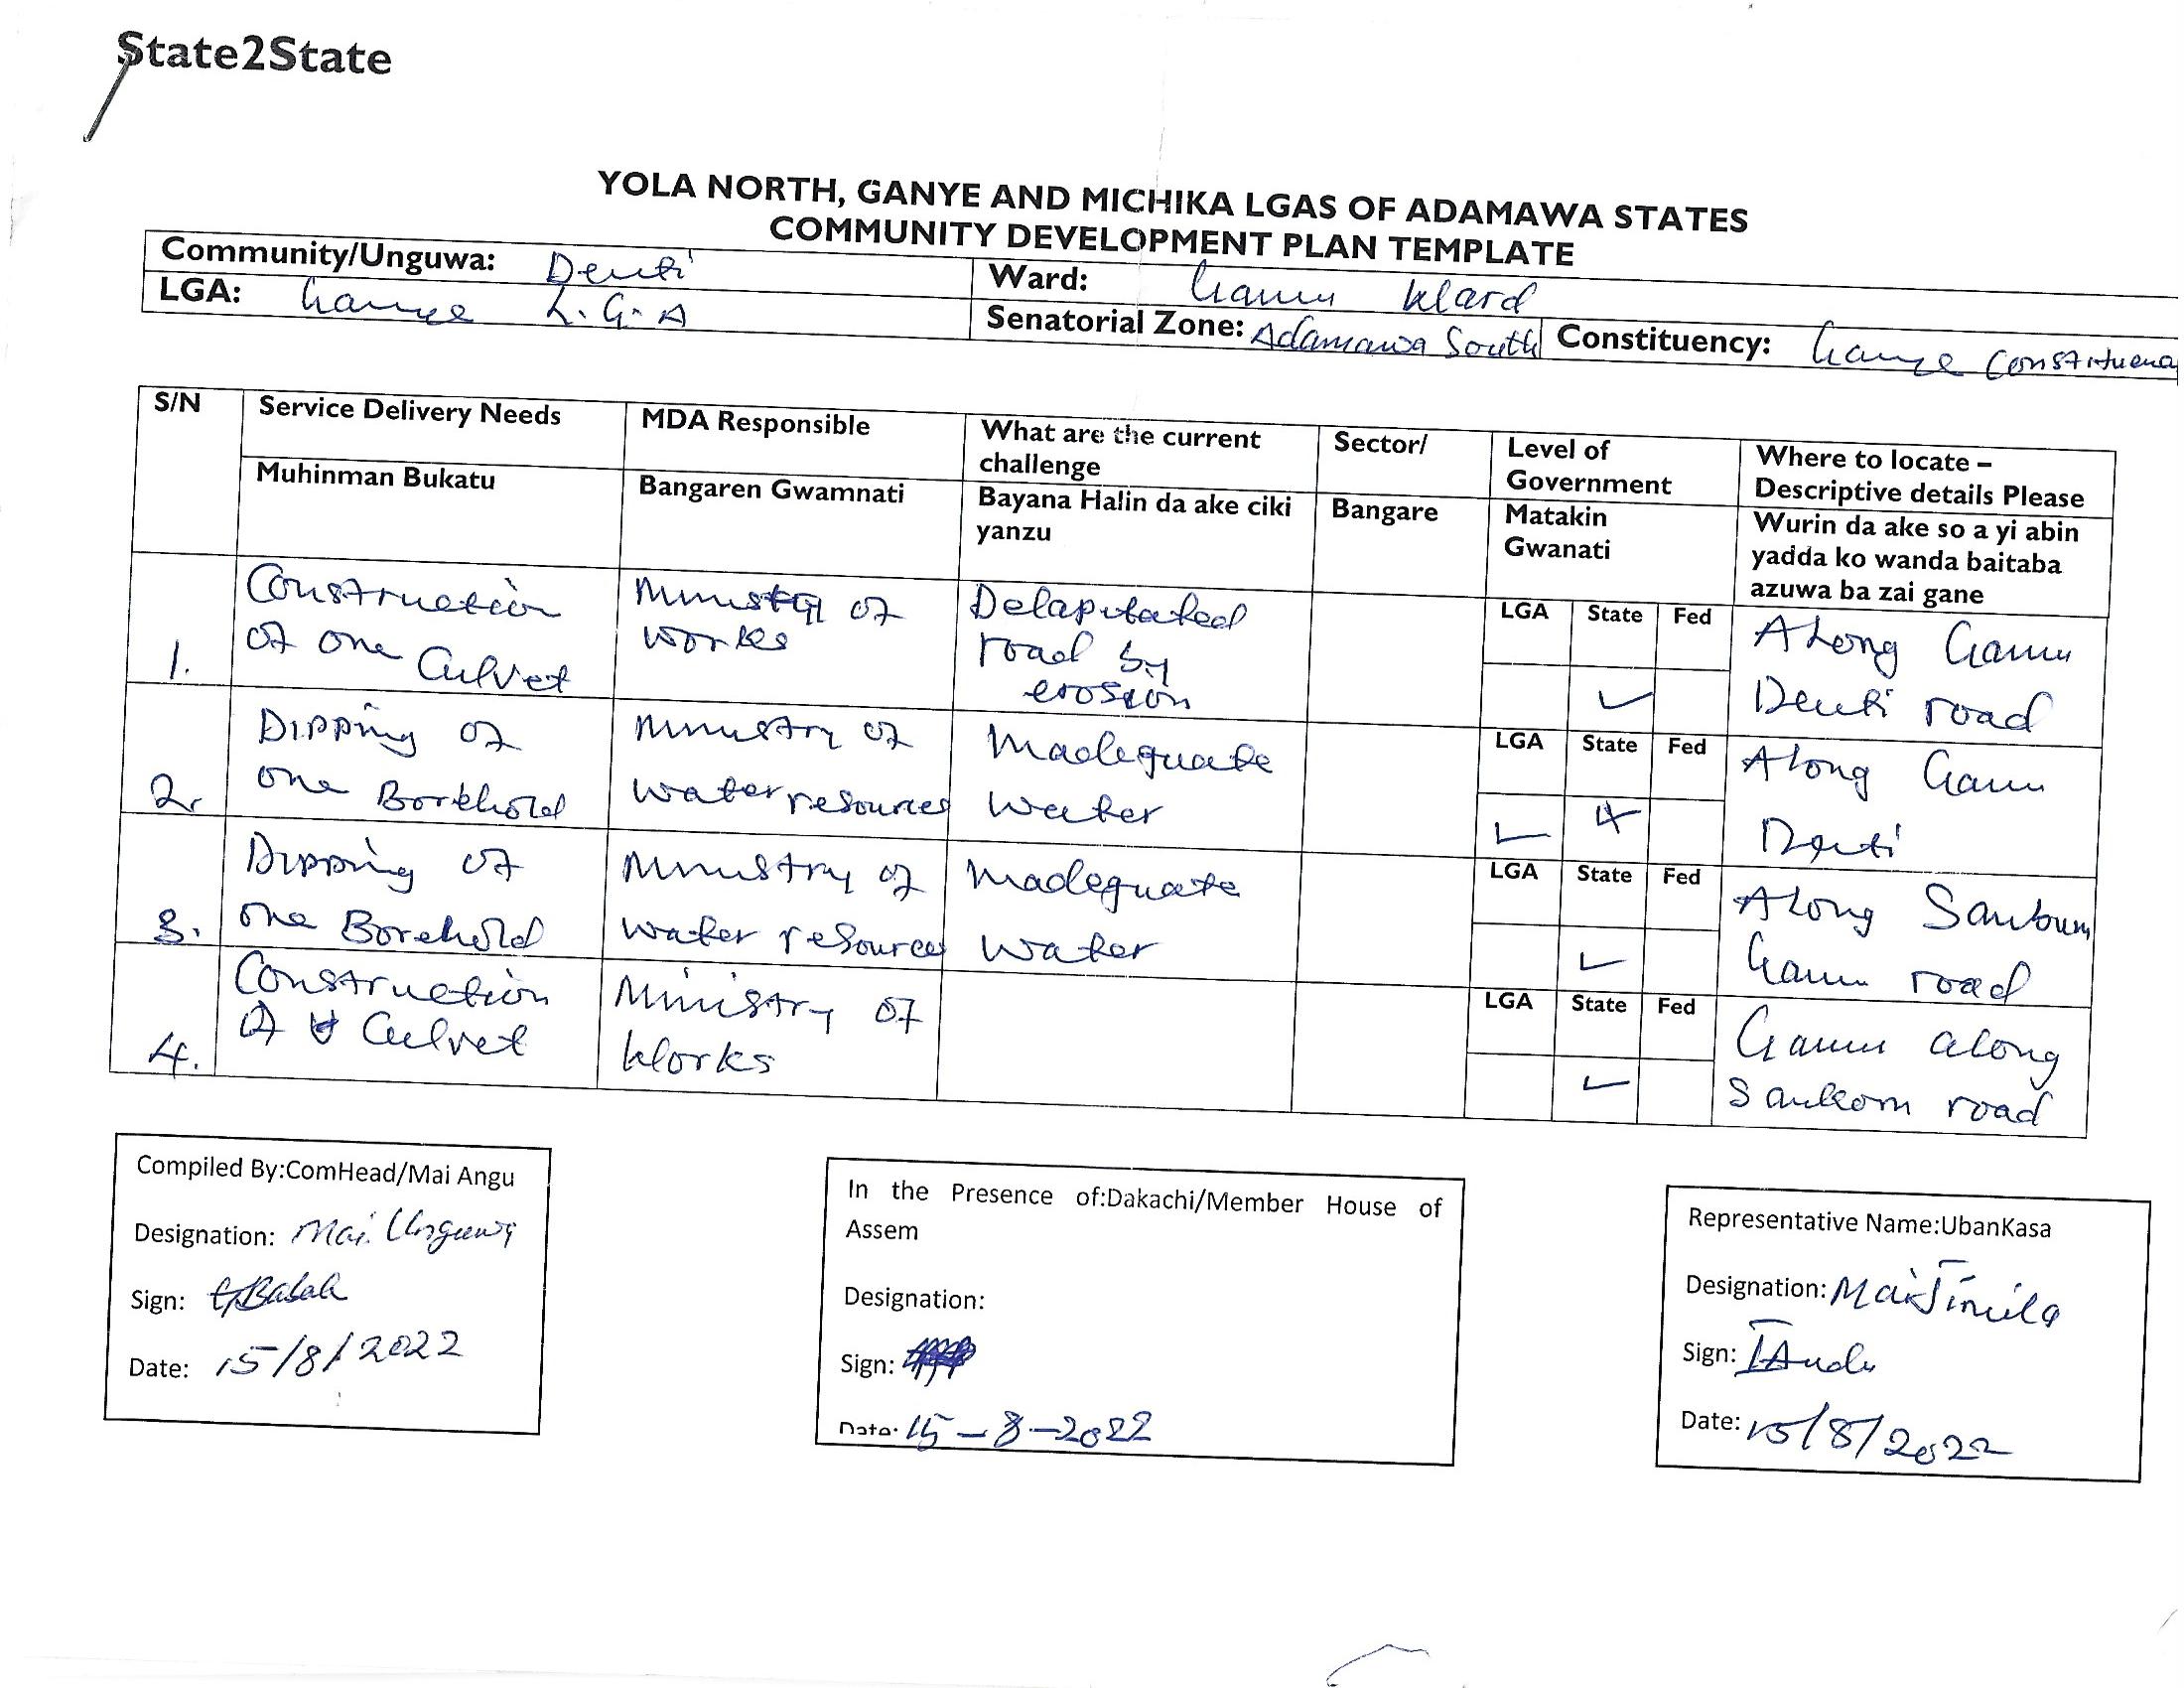 State2State
YOLA NORTH, GANYE AND MICHIKA LGAS OF ADAMAWA STATES
COMMUNITY DEVELOPMENT PLAN TEMPLATE
Community/Unguwa: Denti Ward: Gamu Ward
LGA: Ganye L.G.A Senatorial Zone: Adamawa South Constituency: Ganye Constituency
S/N Service Delivery Needs MDA Responsible What are the current challenge Sector/ Level of Government Where to locate – Descriptive details Please
Muhinman Bukatu Bangaren Gwamnati Bayana Halin da ake ciki yanzu Bangare Matakin Gwanati Wurin da ake so a yi abin yadda ko wanda baitaba azuwa ba zai gane
1. Construction of one Culvet Ministry of works Delapitated road by erosion LGA State Fed ✓ Along Gamu Denti road
2. Dipping of one Borehold Ministry of water resources Inadequate water LGA State Fed ✓ Along Gamu Denti
3. Dipping of one Borehold Ministry of water resources Inadequate water LGA State Fed ✓ Along Gamu road
4. Construction of Culvet Ministry of Works LGA State Fed ✓ Gamu along road
Compiled By:ComHead/Mai Angu
Designation: Mai Unguwa
Sign:
Date: 15/8/2022
In the Presence of:Dakachi/Member House of
Assem
Designation:
Sign:
Date: 15-8-2022
Representative Name:UbanKasa
Designation: Mai Jimila
Sign:
Date: 15/8/2022